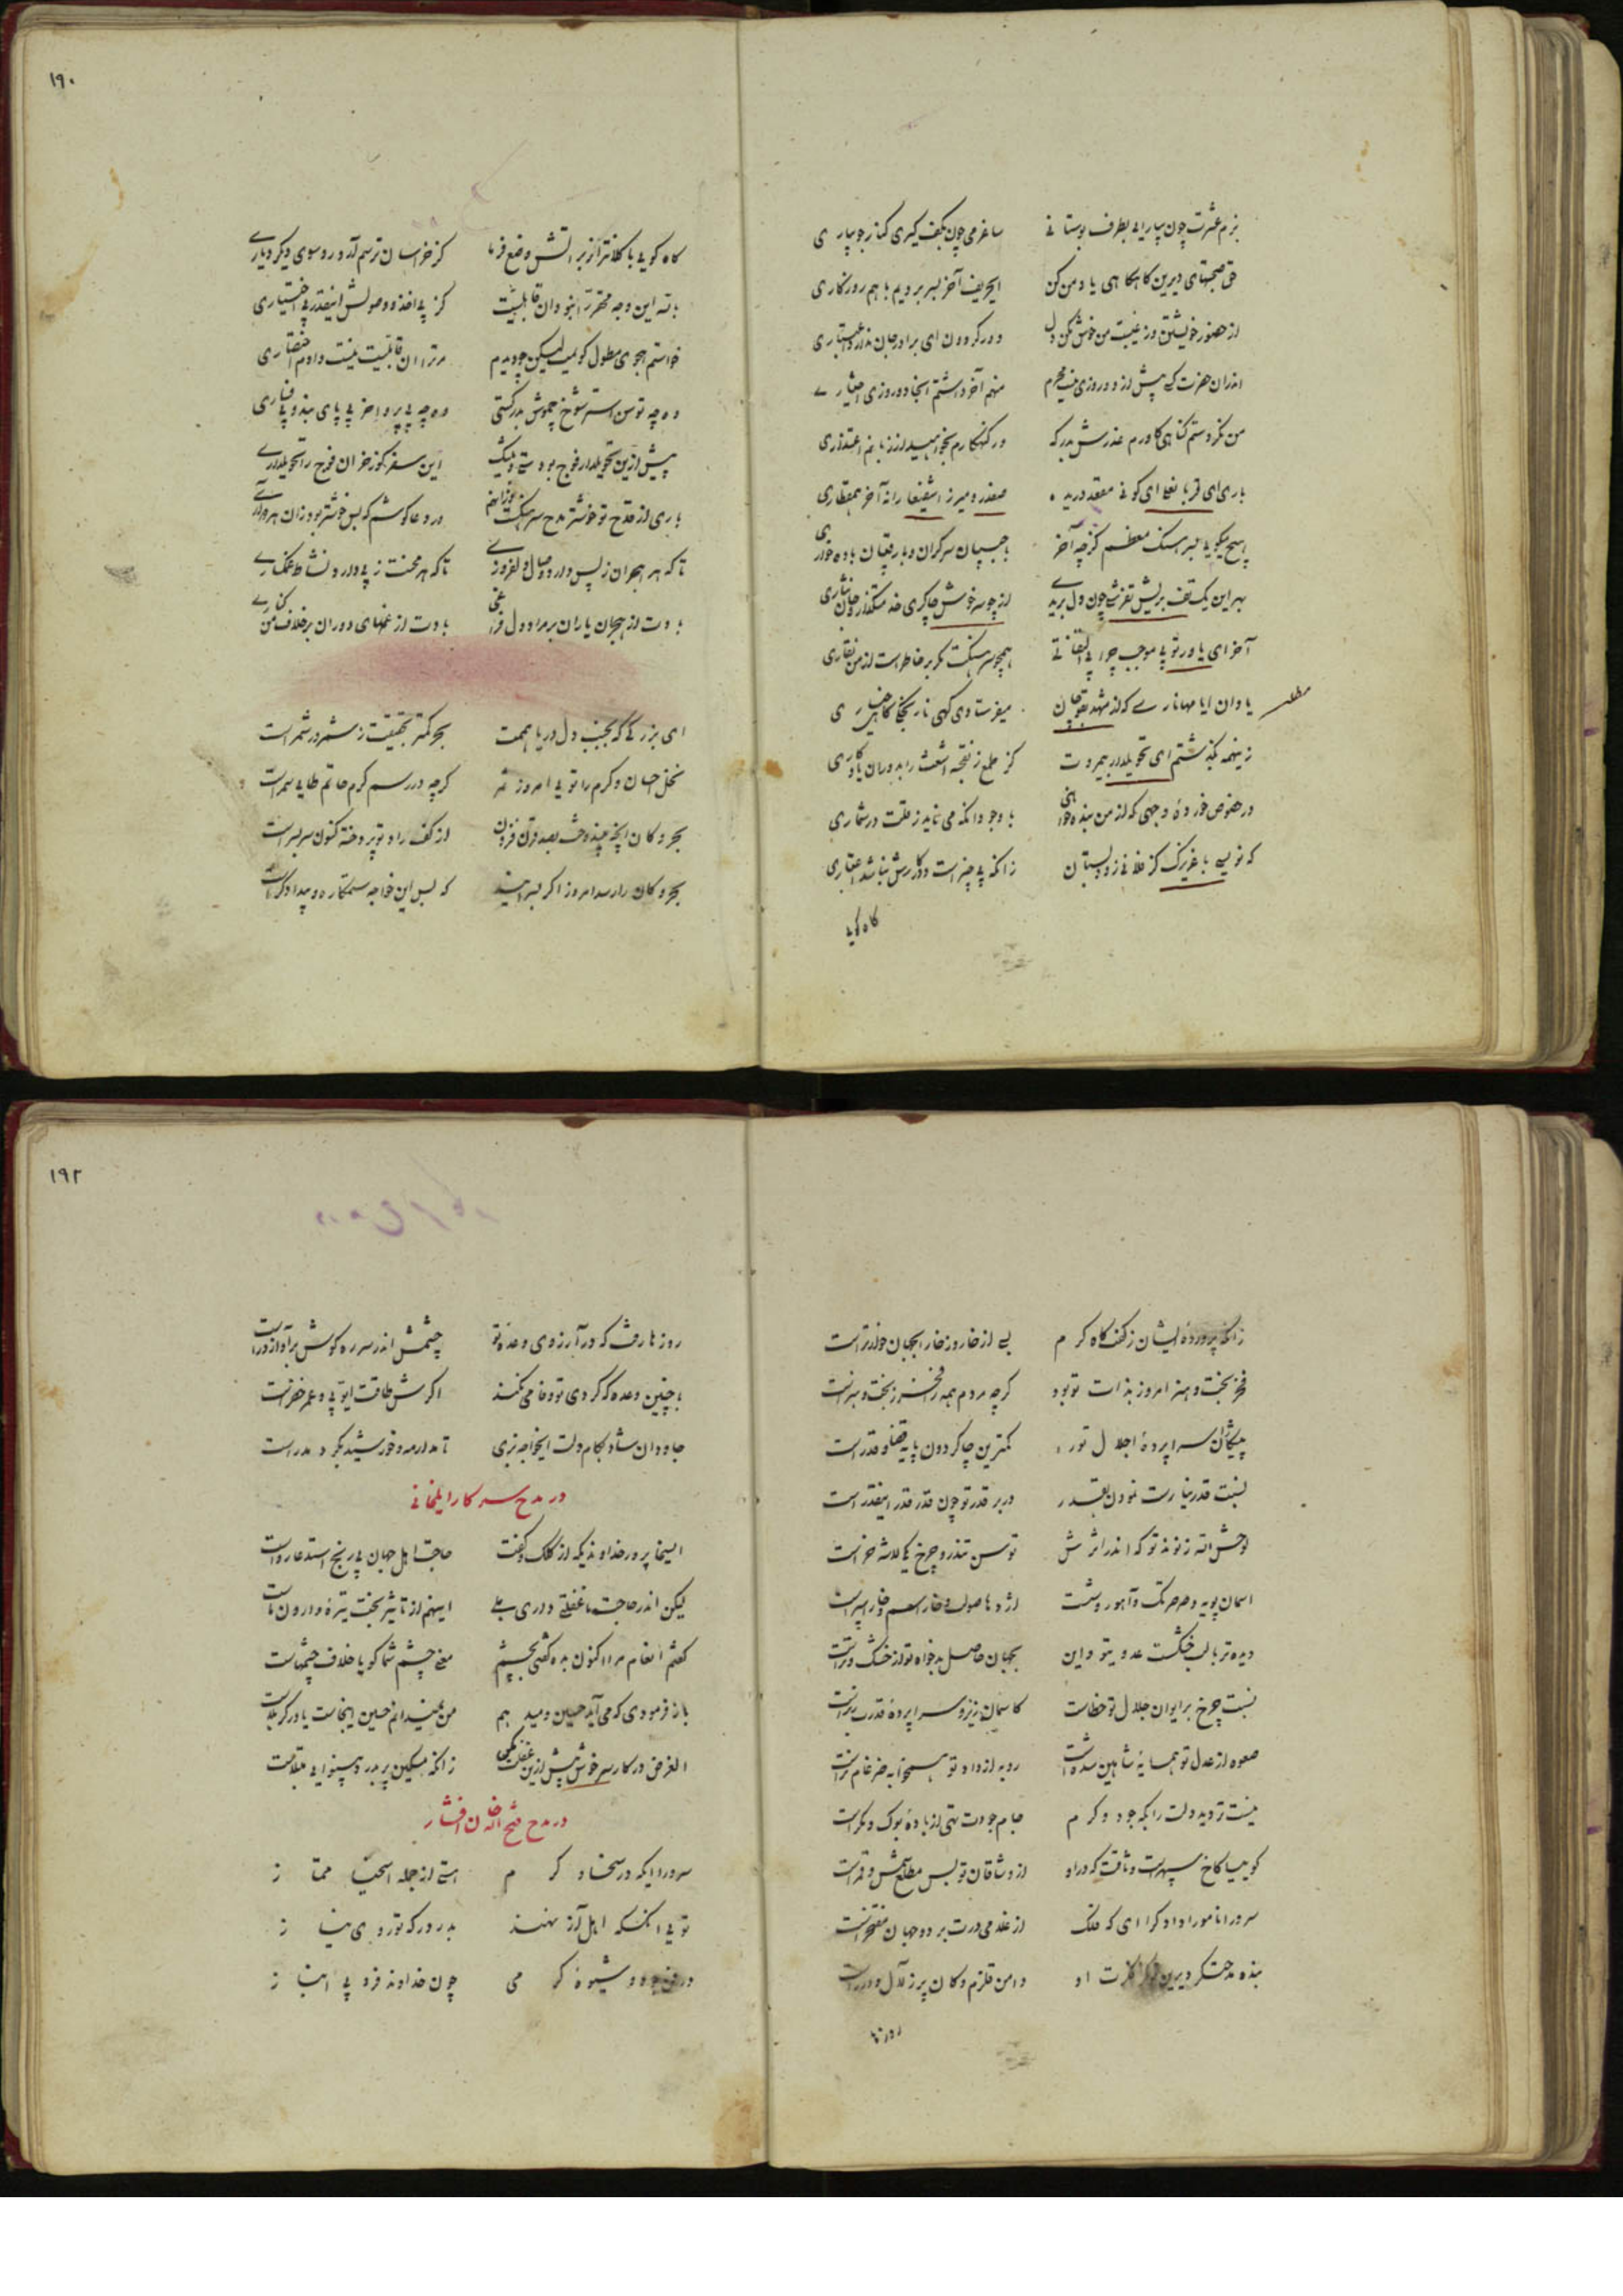 بزم عشرت چون بیارایی بطرف بوستانی ساغر می چون بکف گیری کنار جویباری
حق صحبتهای دیرین گاهگاهی یاد من کن ایحریف آخر بسر بردیم باهم روزگاری
از حضور خویشتن وز غیبت من خوش مکن دل دور گردون ای برادر جان ندارد اعتباری
اندران حضرت که پیش از دو روزی نیست محرم منهم آخر داشتم آنجا دو روزی اعتباری
من نکردستم گناهی کاورم عذرش بدرگه ور گنهکارم بخواهید از زبانم اعتذاری
باری ای قربانعلی ای کونی مقعد دریده صفدر و میرزا شفیعا را نه آخر همقطاری
هیچ میگویی بسر هنگ معظم کز چه آخر با حبیبان سرگران و با رقیبان باده خواری
بهر این یک تف بریش تفرشی چون دل بریدی از چو سرخوش چاکری خدمتگذار و جان نثاری
آخر ای یاور تو بی موجب چرا بی التفاتی همچو سرهنگت مگر بر خاطر است از من نقاری
یاوران ایا مهانداری که از مشهد بقوچان میفرستادی گهی نارنج گاهی خیاری
زینهمه بگذشتم ای تحویلدار بیمروت کز طمع زنقحبه اشعث را بدوران یادگاری
در خصوص خورده وجهی که از من بنده خواهی با وجود آنکه می ناید ز قلت در شماری
که نویسی با عزیزک کز فلانی زود بستان زانکه بی چیز است و کارش نباشد اعتباری
گاه گویی
۱۹۰
گاه گویی با کلانتر از براتش وضع فرما کز خراسان ترسم آرد رو سوی دیگر دیاری
با نه این وجه محقر را نبود آن قابلیت کز پی اخذ و وصولش اینقدر بی اختیاری
خواستم هجوی مطول گویمت لیکن چو دیدم مر ترا آن قابلیت نیست دادم اختصاری
وه چه توسن استر شوخ چموش بدرکستی وه چه بی پروا خر بی پای بند و بی فساری
پیش ازین تحویلدار فوج بودستی ولیک این سفر گوز خران فوج را تحویلداری
باری از قدح تو خوشتر مدح سرهنگست در دعا کوشم که بس خوشتر بود زان هر دو
تا که هر هجران ز پس دارد وصال دلفروزی تا که هر محنت ز پی دارد نشاط غمگساری
بادت از هجران یاران بر مراد دل فراغی بادت از غمهای دوران بر خلاف من کناری
ای بزرگی که بجنب دل دریا همت بحر کمتر بحقیقت ز شمر در شمر است
نخل احسان و کرم را تویی امروز ثمر گرچه در رسم کرم حاتم طایی سمر است
بحر و کان آنچه بیندوخت بصد قرن فزون از کف راد تو پردخته کنون سربسر است
بحر و کان را رسد امروز اگر بسرایند که بس این خواجه ستمکاره و بیدادگر است
زانکه پرورده ایشان ز کفت گاه کرم بی از خار و ز خار ابجهان خوارتر است
فخر بخت و هنر امروز بذات تو بود گرچه مردم همه را فخر ز بخت و هنر است
پیکان سراپرده اجلال تو را کمترین چاکر دون پایه قضا و قدر است
نسبت قدر نیارست نمودن بقدر در بر قدر تو چون قدر قدر اینقدر است
لوحش الله ز نوند تو که اندر اثرش توسن تندرو چرخ یکی لاشه خر است
آسمان پویه و صرصر تک و آهو روشت اژدها صولت و خارا سم و خارا سپر است
دیده تر با لب خشکست عدوی تو و این بجهان حاصل بدخواه تو از خشک و تر است
نسبت چرخ بر ایوان جلال تو خطاست کاسمان زیر و سراپرده قدرت زبر است
صعوه از عدل تو همسایه شاهین شده است روبه از داد تو همخوابه ضرغام نر است
نیست تردید دلت را بگه جود و کرم جام جودت تهی از باده بوک و مگر است
گوییا کاخ سپهرت وثاقت که در او از وشاقان تو بس مطلع شمس و قمر است
سرورا نامورا دادگرا ای که فلک از غلامی درت بر دو جهان مفتخر است
بنده مدحتگر دیرین او دامن قلزم و کان پر ز لآل و درر است
روزها
۱۹۲
روزها رفت که در آرزوی وعده تو چشمش اندر سر ره گوش بر آواز در است
با چنین وعده که کردی تو وفا می نکند اگرش طاقت ایوبی و عمر خضر است
جاودان شاد بکام دلت ایخواجه بزی تا مدار مه و خورشید بگرد مدر است
در مدح سرکار ایلخانی
ایسخا پرور خداوندیکه از کلک و کفت حاجت اهل جهان بی رنج استدعا رواست
لیکن اندر حاجت ما غفلتی داری بلی اینهم از تاثیر بخت تیره وارون ماست
گفتم انعام مرا اکنون بده گفتی بچشم معنی چشم شما گویا خلاف چشمهاست
باز فرمودی که می آید حسین و میدهم من نمیدانم حسین اینجاست یا در کربلاست
الغرض در کار سرخوش بیش ازین غفلت مکن زانکه مسکین پر بدرد بینوایی مبتلاست
در مدح فتح الله خان افشار
سرورا ایکه در سخا و کرم استی از جمله اسخیا ممتاز
تویی آنکسکه اهل آز نهند بدر درگه تو روی نیاز
در فن جود و شیوه کرمی چون خداوند فرد بی انباز